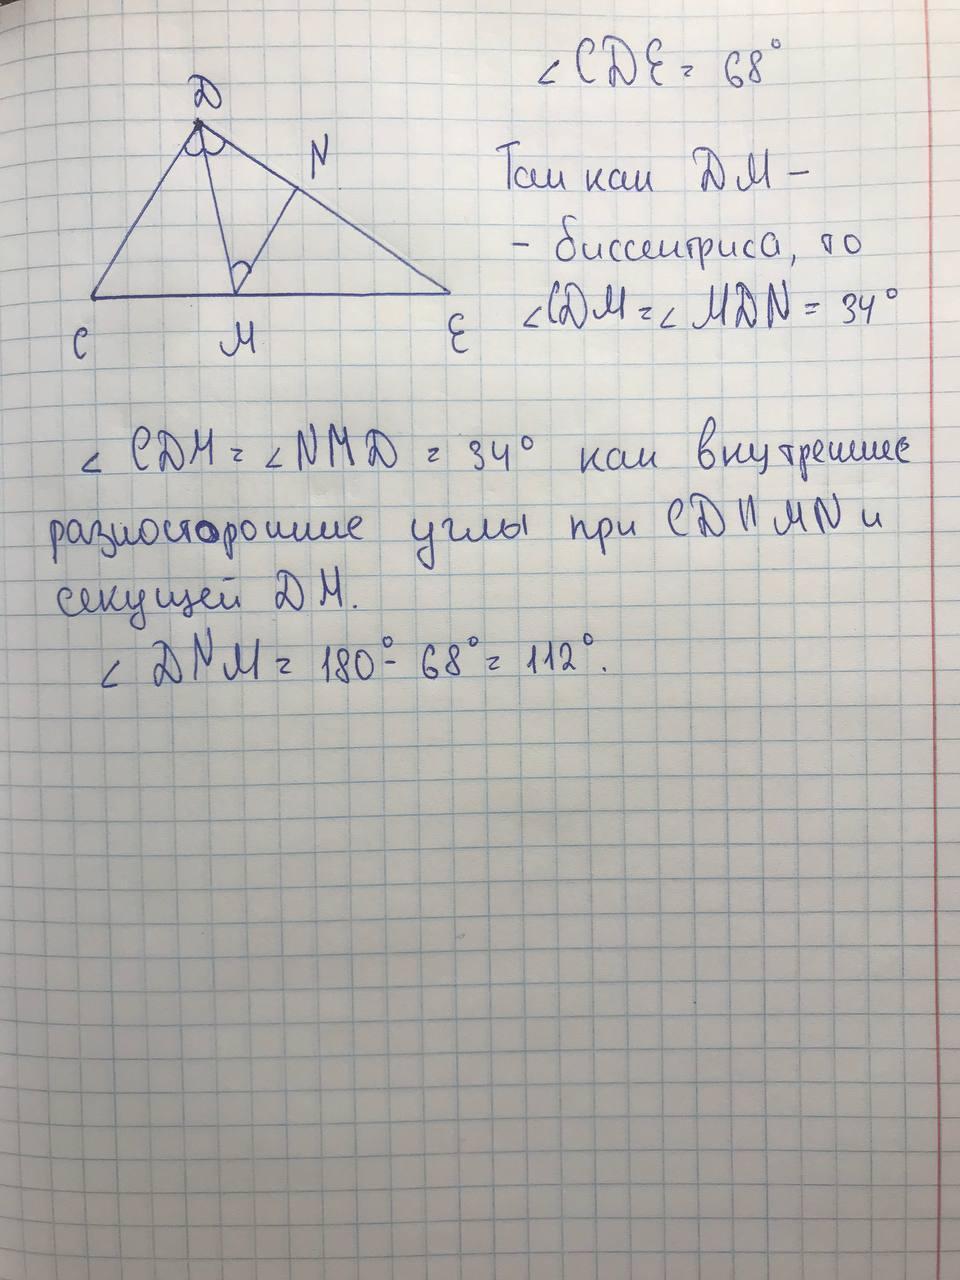 ∠CDE = 68°
D
N
Так как DM –
– биссектриса, то
∠CDM = ∠MDN = 34°
C
M
E
∠CDM = ∠NMD = 34° как внутренние
разносторонние углы при CD || MN и
секущей DM.
∠DNM = 180° - 68° = 112°.